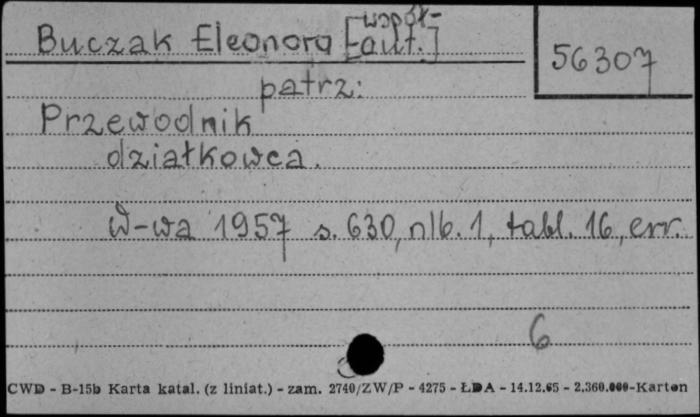 Buczak Eleonora [współ-
aut.]
56307
patrz:
Przewodnik
działkowca.
W-wa 1957 s. 630, nlb. 1, tabl. 16, err.
6
CWD - B-15b Karta katal. (z liniat.) - zam. 2740/ZW/P - 4275 - ŁDA - 14.12.65 - 2.360.000-Karton